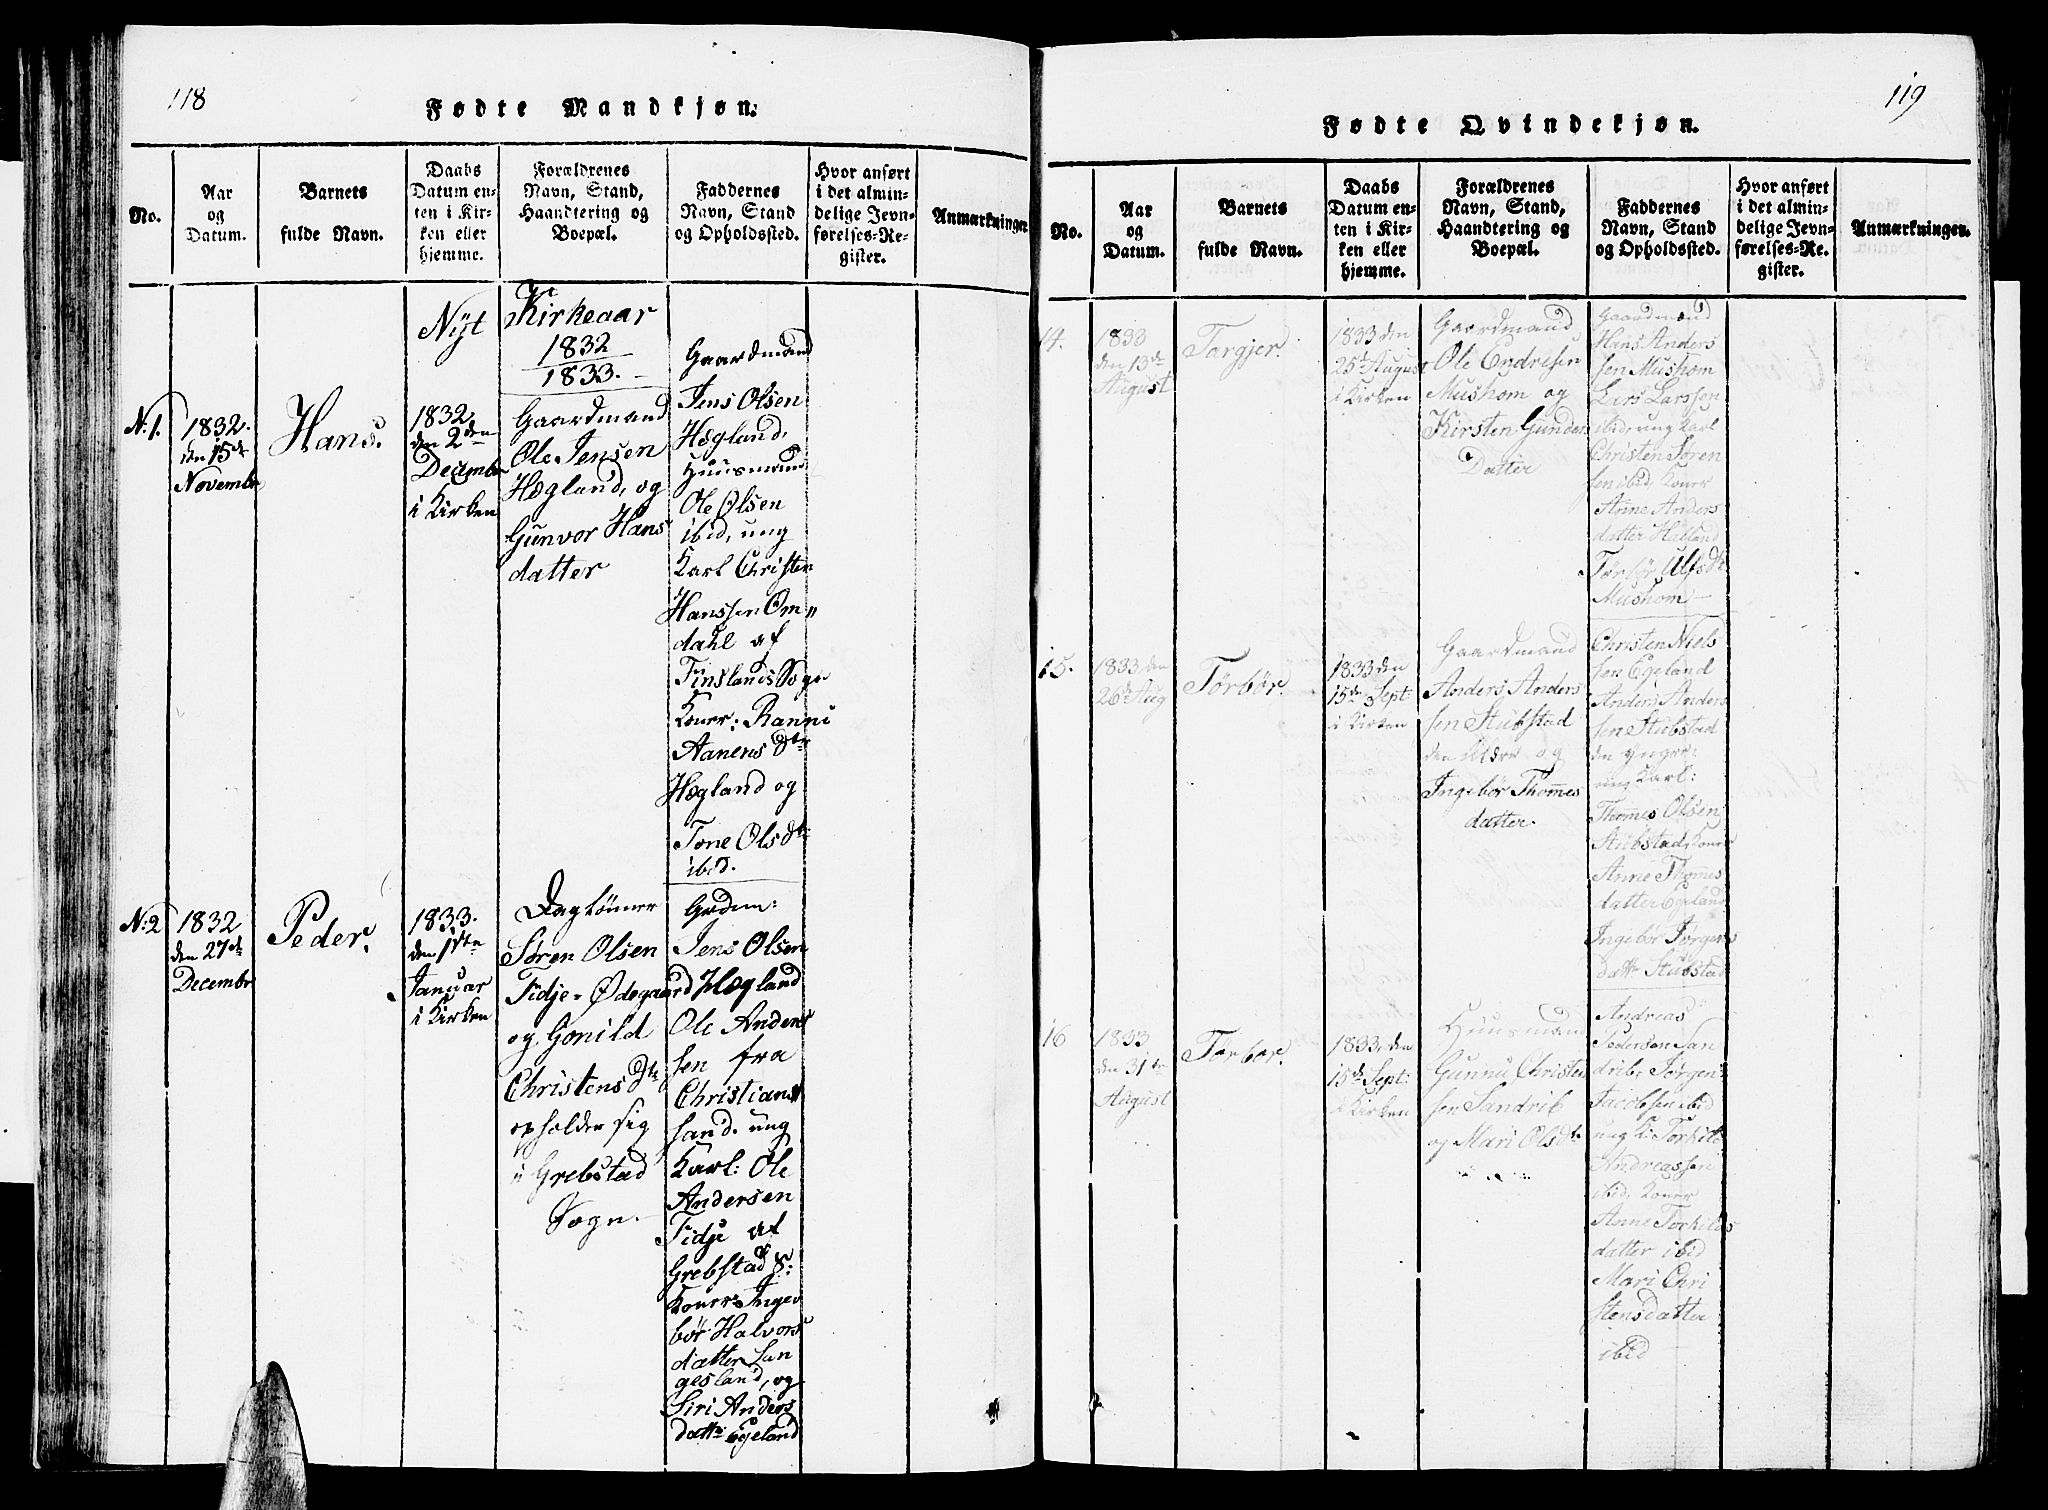 118
Fødte Mandkjøn.
No.
Aar
og
Datum.
Barnets
fulde Navn.
Daabs
Datum en-
ten i Kir-
ken eller
hjemme.
Forældrenes
Navn, Stand,
Haandtering og
Boepæl.
Faddernes
Navn, Stand
og Opholdssted.
Hvor anført
i det almin-
delige Jevn-
førelses-Re-
gister.
Anmærkninger
Nyt Kirkeaar
1832
1833.
N:1.
1832.
den 15de
Novembr
Hans.
1832
den 2den
Decembr
i Kirken
Gaardmand
Ole Jensen
Hægland, og
Gunvor Hans
datter
Gaardmand
Jens Olsen
Hægland,
Huusmand
Ole Olsen
ibid, ung
Karl Christen
Hanssen Om„
dahl af
Finslands Sogn
Koner: Ranni
Aanens Dtr
Hægland og
Tone Olsdtr
ibid.
N:2
1832
den 27de
Decembr
Peder.
1833.
den 1ste
Januar
i Kirken
Daglönner
Søren Olsen
Fidje-Ødegaard
og Gonild
Christens Dtr
opholder sig
i Grebstad
Sogn.
Gdm:
Jens Olsen
Hægland
Ole Anders
sen fra
Christian„
sand. ung
Karl: Ole
Andersen
Fidje af
Grebstad S:
Koner: Inge
bør Halvors
datter Lan
gesland, og
Siri Anders
datter Egeland
119
Fødte Qvindekjøn.
No.
Aar
og
Datum.
Barnets
fulde Navn.
Daabs
Datum en-
ten i Kir-
ken eller
hjemme.
Forældrenes
Navn, Stand,
Haandtering og
Boepæl.
Faddernes
Navn, Stand
og Opholdssted.
Hvor anført
i det almin-
delige Jevn-
førelses-Re-
gister.
Anmærkninger.
14.
1833
den 13de
August
Targjer.
1833 den
25de August
i Kirken
Gaardmand
Ole Endresen
Mushom og
Kirsten Gunders
Datter
Gaardmænd
Hans Anders
sen Mushom
Lars Larssen
ibid, ung Karl
Christen Søren
sen ibid, Koner
Anne Anders
datter Haeland
Tørbør Ulfsdtr
Mushom
15.
1833 den
26de Aug
Tørbør.
1833 den
15de Sept:
i Kirken
Gaardmand
Anders Anders
sen Stubstad
den Ældre og
Ingebør Thommes
datter.
Christen Niels
sen Egeland
Anders Anders
sen Stubstad
den yngre:
ung Karl:
Thommes Olsen
Stubstad, Koner
Anne Thommes
datter Egeland
Ingebør Jørgens
dattr Stubstad
16
1833
den 31te
August
Tørbør.
1833 den
15de Sept:
i Kirken
Huusmand
Gunnu Christen
sen Sandrib
og Mari Olsdtr
Andreas
Pedersen San
drib, Jørgen
Jacobsen ibid
ung K: Torkild
Andreassen
ibid, Koner
Anne Torkilds
datter ibid
Mari Chri
stensdatter
ibid